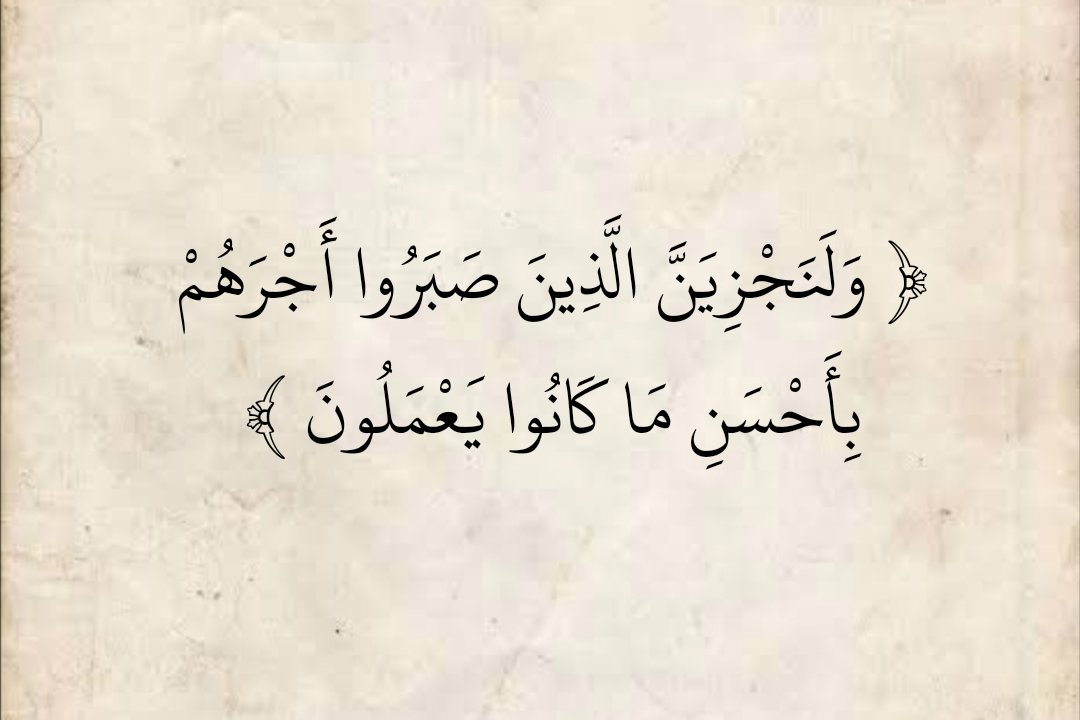 ﴿ وَلَنَجْزِيَنَّ الَّذِينَ صَبَرُوا أَجْرَهُمْ
بِأَحْسَنِ مَا كَانُوا يَعْمَلُونَ ﴾